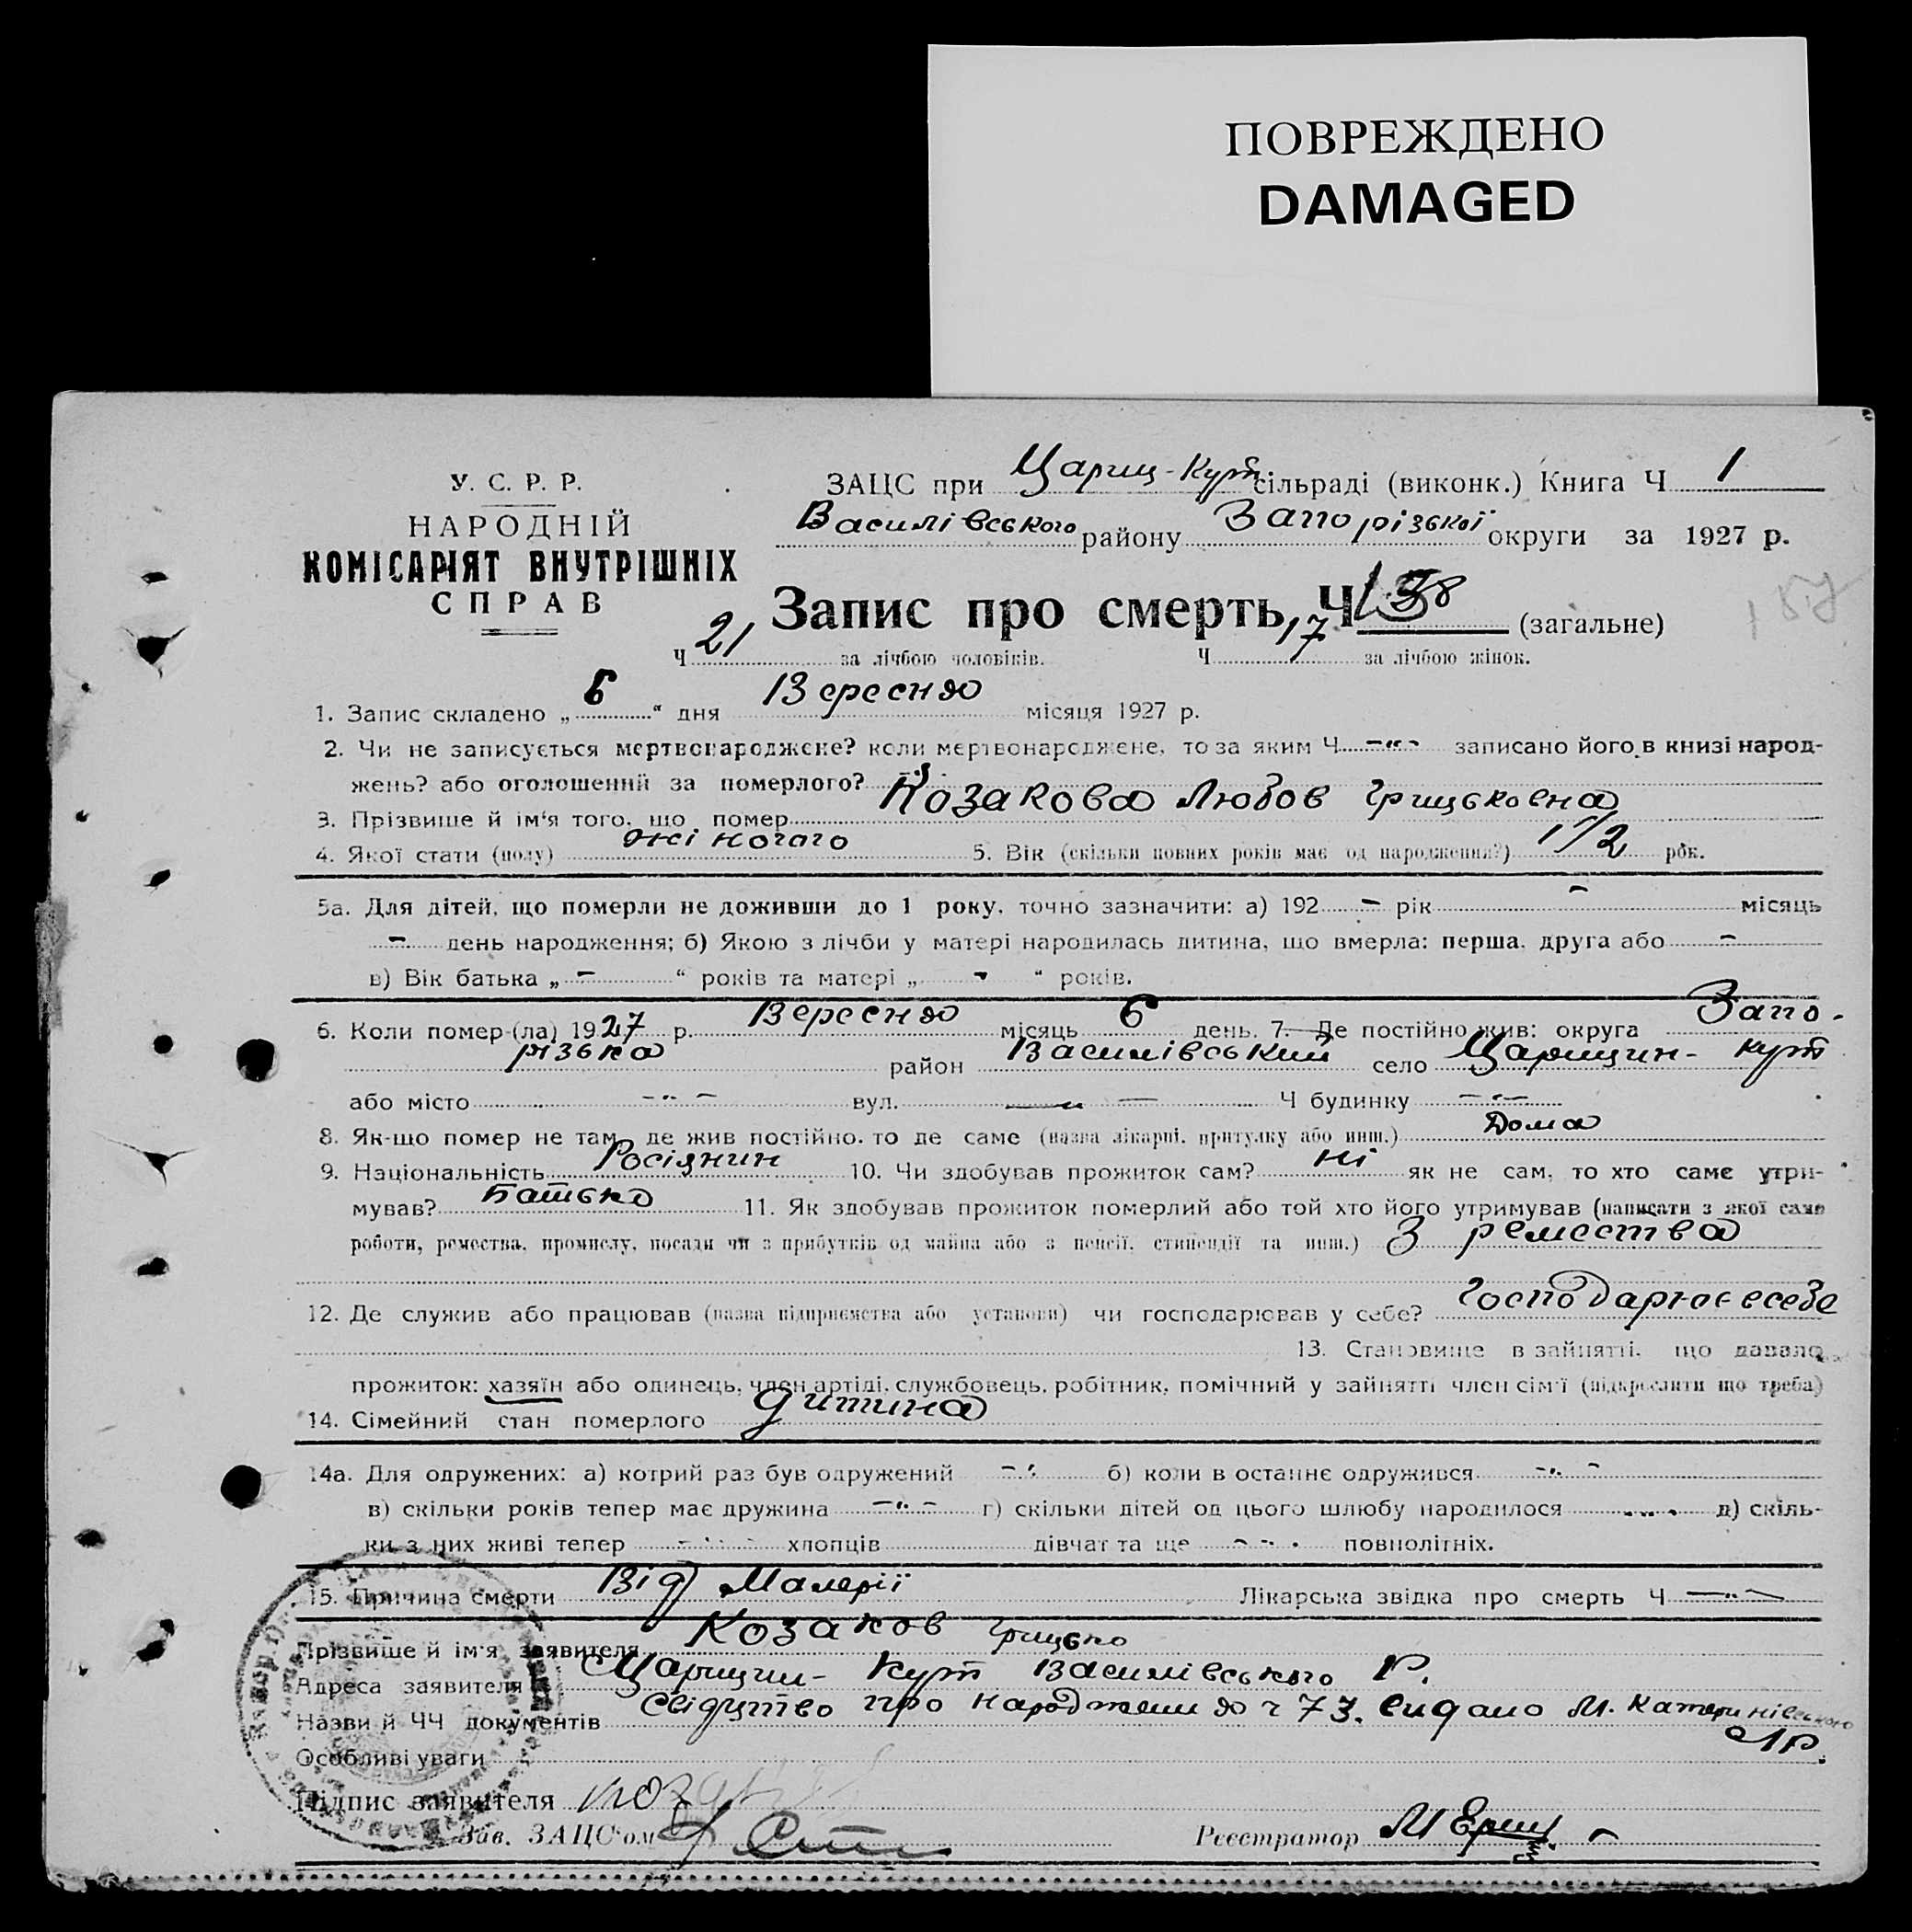 ПОВРЕЖДЕНО
DAMAGED
У. С. Р. Р.
НАРОДНІЙ
КОМІСАРІЯТ ВНУТРІШНІХ
СПРАВ
ЗАЦС при Цариц-Кут сільраді (виконк.) Книга Ч 1
Василівського району Запорізької округи за 1927 р.
Запис про смерть, Ч 38 (загальне)
Ч 21 за лічбою чоловіків. Ч 17 за лічбою жінок.
1. Запис складено „ 6 “ дня Вересня місяця 1927 р.
2. Чи не записується мертвонароджене? коли мертвонароджене, то за яким Ч -"- записано його в книзі народ-
жень? або оголошенній за померлого?
3. Прізвище й ім'я того, що помер Козакова Любов Грицьковна
4. Якої стати (полу) жіночого 5. Вік (скільки повних років має од народження?) 1 1/2 рок.
5а. Для дітей, що померли не доживши до 1 року, точно зазначити: а) 192 - рік - місяць
- день народження; б) Якою з лічби у матері народилась дитина, що вмерла: перша, друга або -
в) Вік батька „ - “ років та матері „ - “ років.
6. Коли помер-(ла) 1927 р. Вересня місяць 6 день. 7. Де постійно жив: округа Запо-
різька район Василівський село Царицин- Кут
або місто -"- вул. -"- Ч будинку -"-
8. Як-що помер не там, де жив постійно, то де саме (назва лікарні, притулку або инш.) Дома
9. Національність Росіянин 10. Чи здобував прожиток сам? Ні як не сам, то хто саме утри-
мував? Батько 11. Як здобував прожиток померлий або той хто його утримував (написати з якої саме
роботи, ремества, промислу, посади чи з прибутків од майна або з пенсії, стипендії та инш.) З ремества
12. Де служив або працював (назва підприємства або установи) чи господарював у себе? Господарює в себе
13. Становище в зайнятті, що давало
прожиток: хазяїн або одинець, член артілі, службовець, робітник, помічний у зайнятті член сім'ї (підкреслити що треба)
14. Сімейний стан померлого дитина
14а. Для одружених: а) котрий раз був одружений -"- б) коли в останнє одружився -"-
в) скільки років тепер має дружина -"- г) скільки дітей од цього шлюбу народилося -"- д) скіль-
ки з них живі тепер -"- хлопців дівчат та ще -"- повнолітніх.
15. Причина смерти Від Малерії Лікарська звідка про смерть Ч -"-
Прізвище й ім'я заявителя Козаков Грицько
Адреса заявителя Царицин- Кут Василівського Р.
Назви й ЧЧ документів Свідуцтво про народження ч 73. видано М. Катеринівського
Особливі уваги
Підпис заявителя
Зав. ЗАЦС'ом Реєстратор